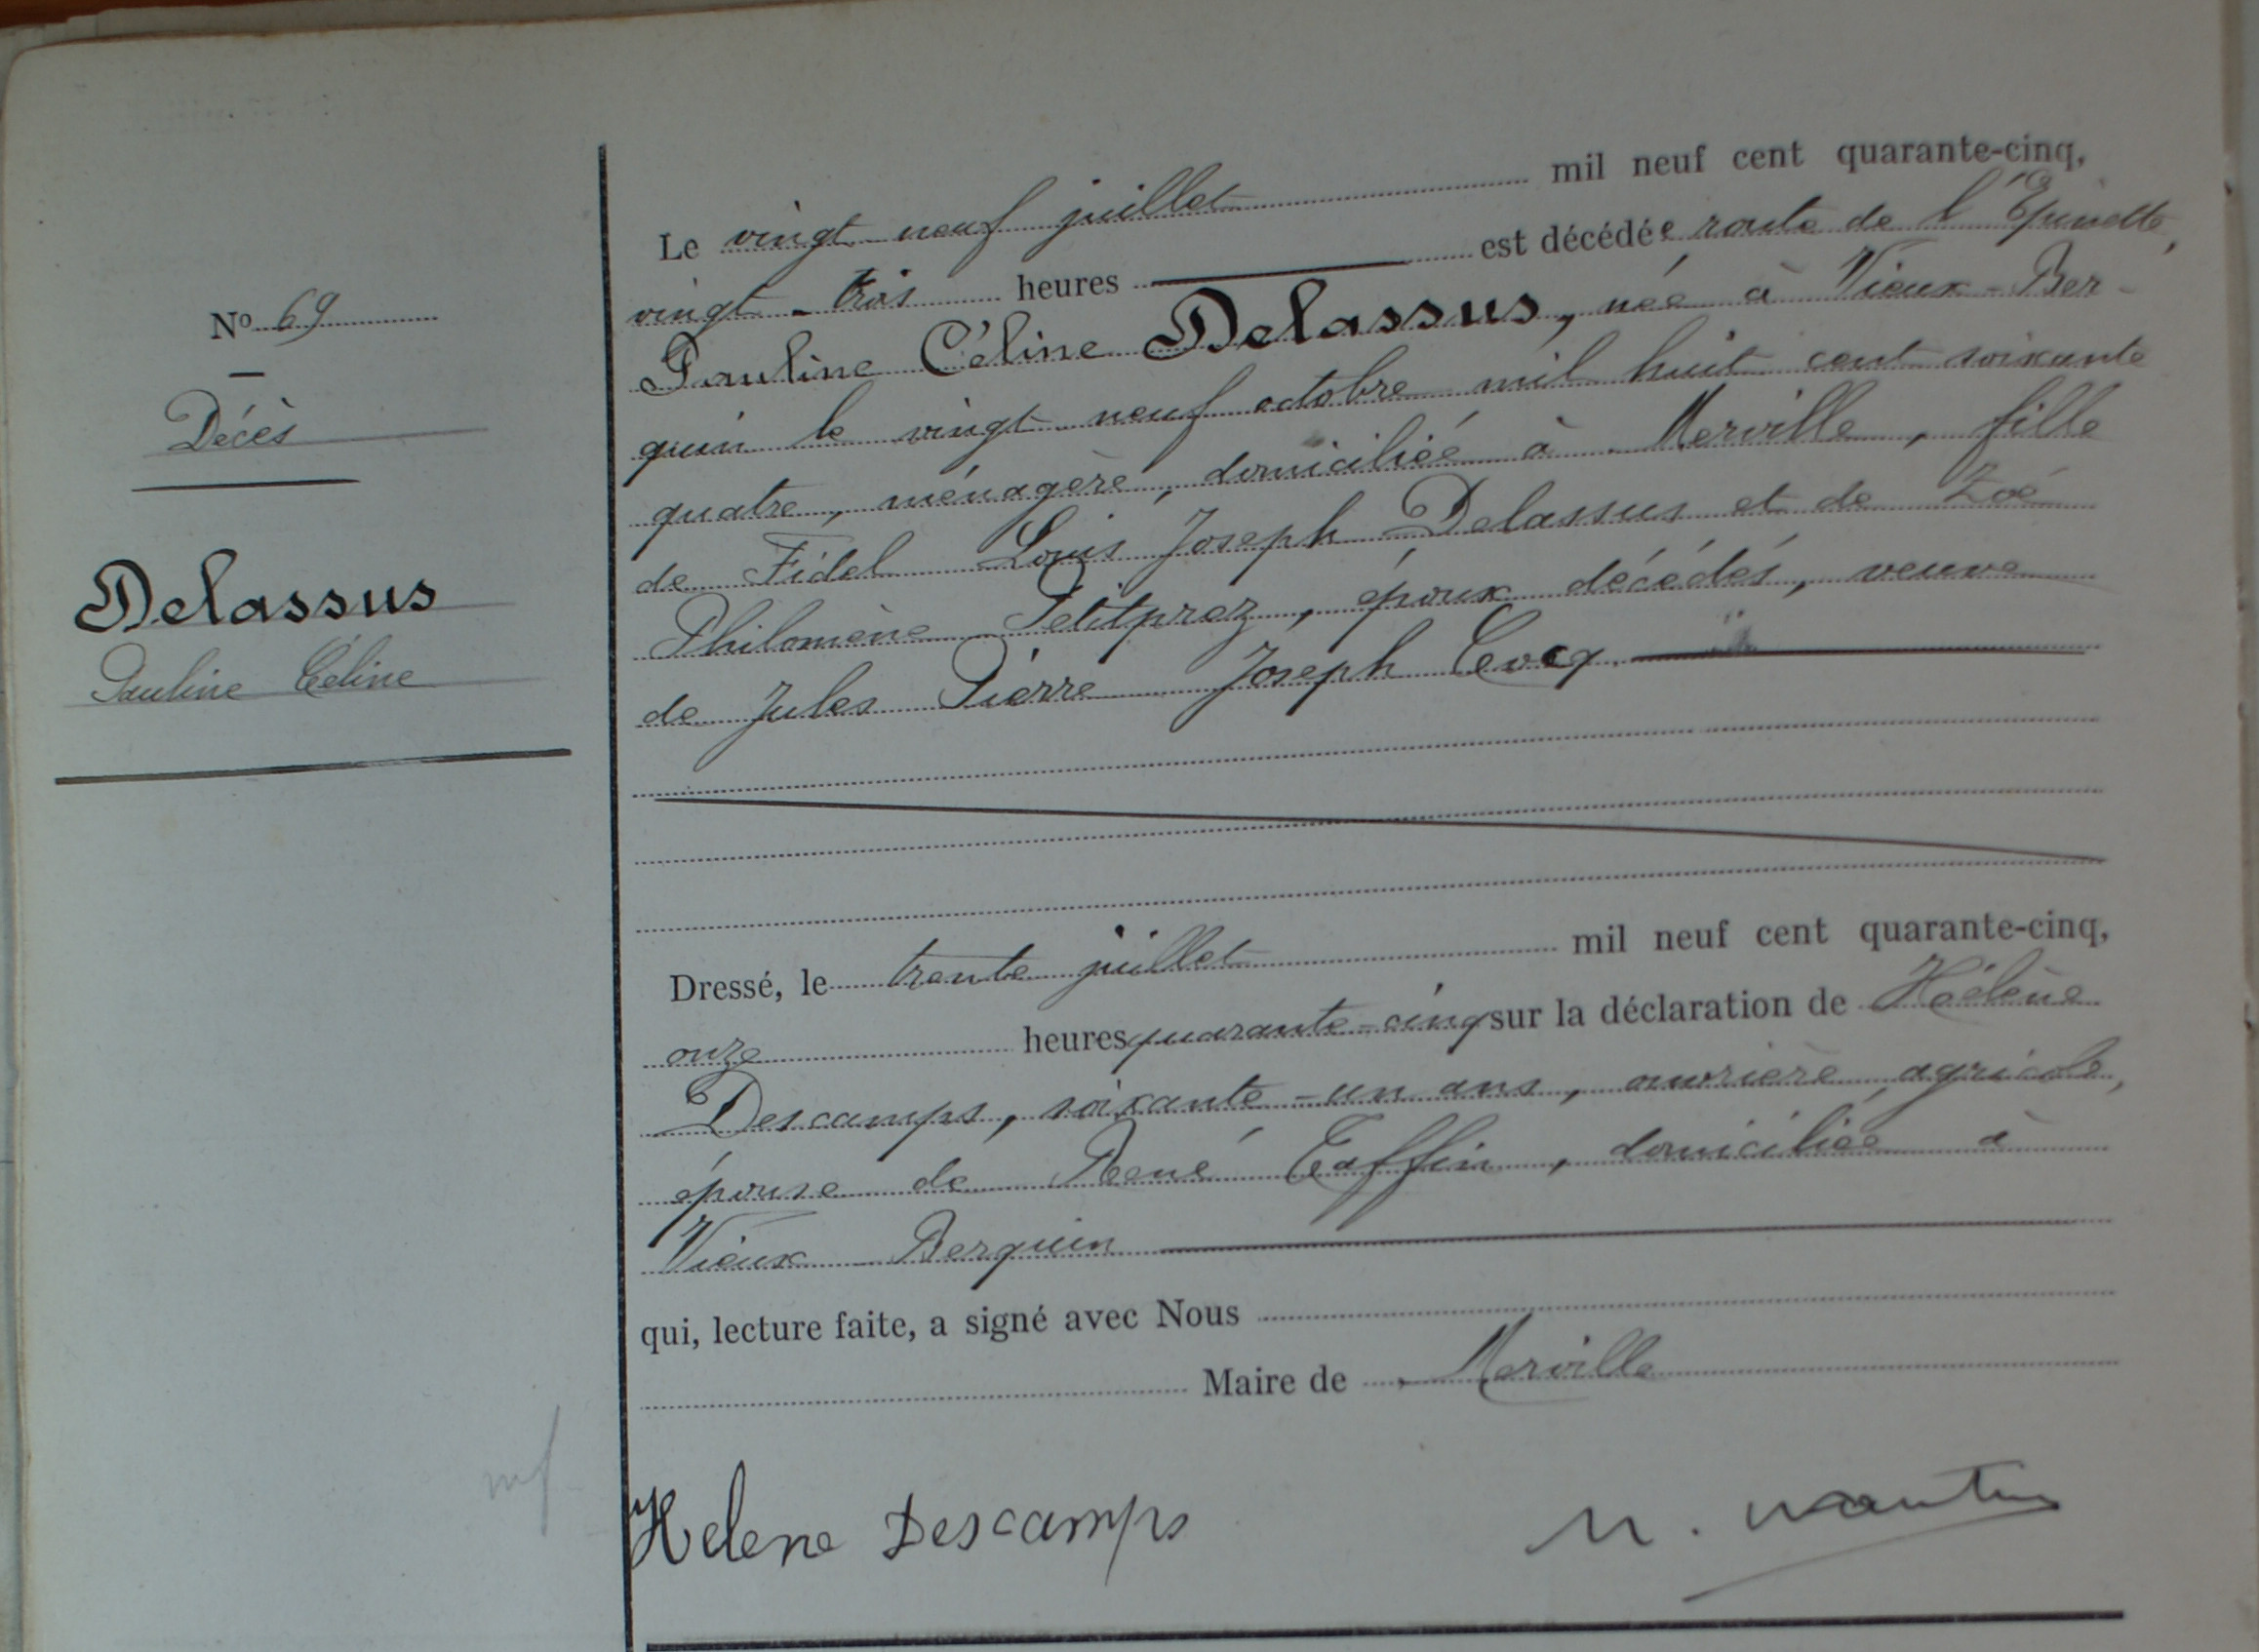 N° 69
Décès
Delassus
Pauline Céline
Le vingt-neuf juillet mil neuf cent quarante-cinq,
vingt-trois heures est décédée route de l'Epinette,
Pauline Céline Delassus, née à Vieux-Ber-
quin le vingt neuf octobre mil huit cent soixante
quatre, ménagère, domiciliée à Merville, fille
de Fidel Louis Joseph Delassus et de Zoé
Philomène Petitprez, époux décédés, veuve
de Jules Pierre Joseph Cocq.
Dressé, le trente juillet mil neuf cent quarante-cinq,
onze heures quarante-cinq sur la déclaration de Hélène
Descamps, soixante-un ans, ouvrière agricole,
épouse de René Taffin, domiciliée à
Vieux-Berquin
qui, lecture faite, a signé avec Nous
Maire de Merville
Helene Descamps